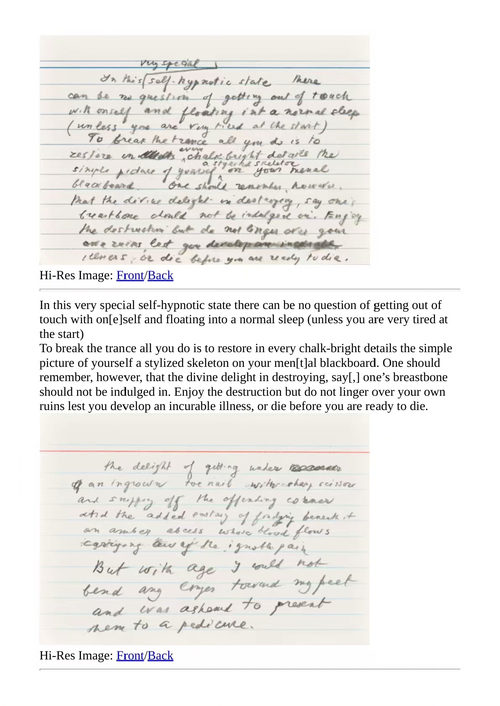 very special
In this self-hypnotic state there
can be no question of getting out of touch
with onself and floating into a normal sleep
(unless you are very tired at the start)
To break the trance all you do is to
restore in every chalk-bright details the
simple picture of yourself a stylized skeleton on your menal
blackboard. One should remember, however,
that the divine delight in destroying, say one's
breastbone should not be indulged in. Enjoy
the destruction but do not linger over your
own ruins, lest you develop an incurable
illness, or die before you are ready to die.
Hi-Res Image: Front/Back
In this very special self-hypnotic state there can be no question of getting out of
touch with on[e]self and floating into a normal sleep (unless you are very tired at
the start)
To break the trance all you do is to restore in every chalk-bright details the simple
picture of yourself a stylized skeleton on your men[t]al blackboard. One should
remember, however, that the divine delight in destroying, say[,] one’s breastbone
should not be indulged in. Enjoy the destruction but do not linger over your own
ruins lest you develop an incurable illness, or die before you are ready to die.
the delight of getting under
an ingrown toe nail with sharp scissor
and snipping off the offending corner
and the added ecstasy of finding beneath it
an amber abcess whose blood flows
carrying away the ignoble pain
But with age I could not
bend any longer toward my feet
and was ashamed to present
them to a pedicure.
Hi-Res Image: Front/Back